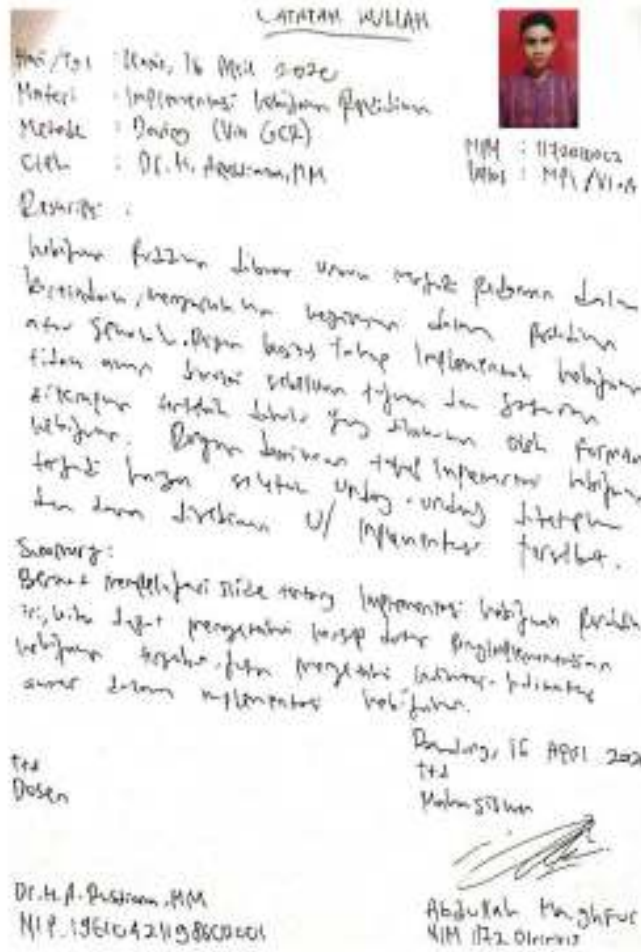 CATATAN KULIAH
Hari/Tgl : Kamis, 16 April 2020
Materi : Implementasi kebijakan Pendidikan
Metode : Daring (Via GCR)
Oleh : Dr. H. A. Rusdiana, MM
NIM :
Kelas : MPI/VI-A
Resume :
kebijakan dibuat untuk menjadi pedoman dalam
bertindak, mengarahkan kegiatan dalam Pendidikan
atau Sekolah. Dengan tahap Implementasi kebijakan
tidak akan dimulai sebelum tujuan dan sasaran
ditetapkan terlebih dahulu yang dilakukan oleh formulasi
kebijakan. Dengan demikian tahap Implementasi kebijakan
terjadi hanya setelah undang-undang ditetapkan
dan dana disediakan U/ Implementasi tersebut.
Summary:
mempelajari slide tentang Implementasi kebijakan Pendidikan
ini, kita dapat mengetahui konsep dasar Pengimplementasian
kebijakan tersebut. Juga mengetahui
dalam implementasi kebijakan.
Bandung, 16 April 2020
ttd
Dosen
ttd
Mahasiswa
Dr. H. A. Rusdiana, MM
NIP. 196104211986021001
Abdullah Maghfur
NIM